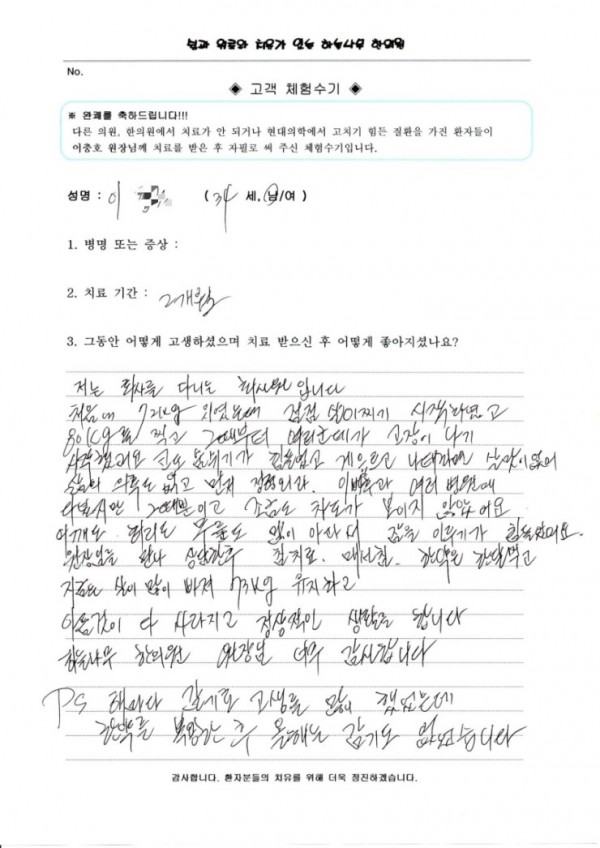 쉼과 위로와 치유가 있는 하늘나무 한의원
No.
◈ 고객 체험수기 ◈
※ 완쾌를 축하드립니다!!!
다른 의원, 한의원에서 치료가 안 되거나 현대의학에서 고치기 힘든 질환을 가진 환자들이
이충호 원장님께 치료를 받은 후 자필로 써 주신 체험수기입니다.
성명 : 이 ( 34 세.남/여 )
1. 병명 또는 증상 :
2. 치료 기간 : 2개월
3. 그동안 어떻게 고생하셨으며 치료 받으신 후 어떻게 좋아지셨나요?
저는 회사를 다니는 회사원입니다
처음에 72kg 이였는데 점점 살이찌기 시작하면고
80kg를 찍고 그때부터 여러군데가 고장이 나기
시작했어요 코도 숨쉬기가 힘들었고 게으르고 나태해지면 삶이없어
삶의 의욕도 없고 이비후과 여러 병원에
다녔지만 그때뿐이고 조금도 차도가 보이지 않았어요
어깨도 허리도 무릎도 많이 아파서 잠을 이루기가 힘들었어요.
원장님을 만나 상담한후 침치료. 매선침. 한약은 한달먹고
지금은 살이 많이 빠져 73kg 유지하고
이 다 사라지고 정상적인 생활을 합니다
하늘나무 한의원 원장님 너무 감사합니다
PS 해마다 감기로 고생을 많이 했었는데
한약을 복용한 후 올해는 감기도 없었습니다
감사합니다. 환자분들의 치유를 위해 더욱 정진하겠습니다.